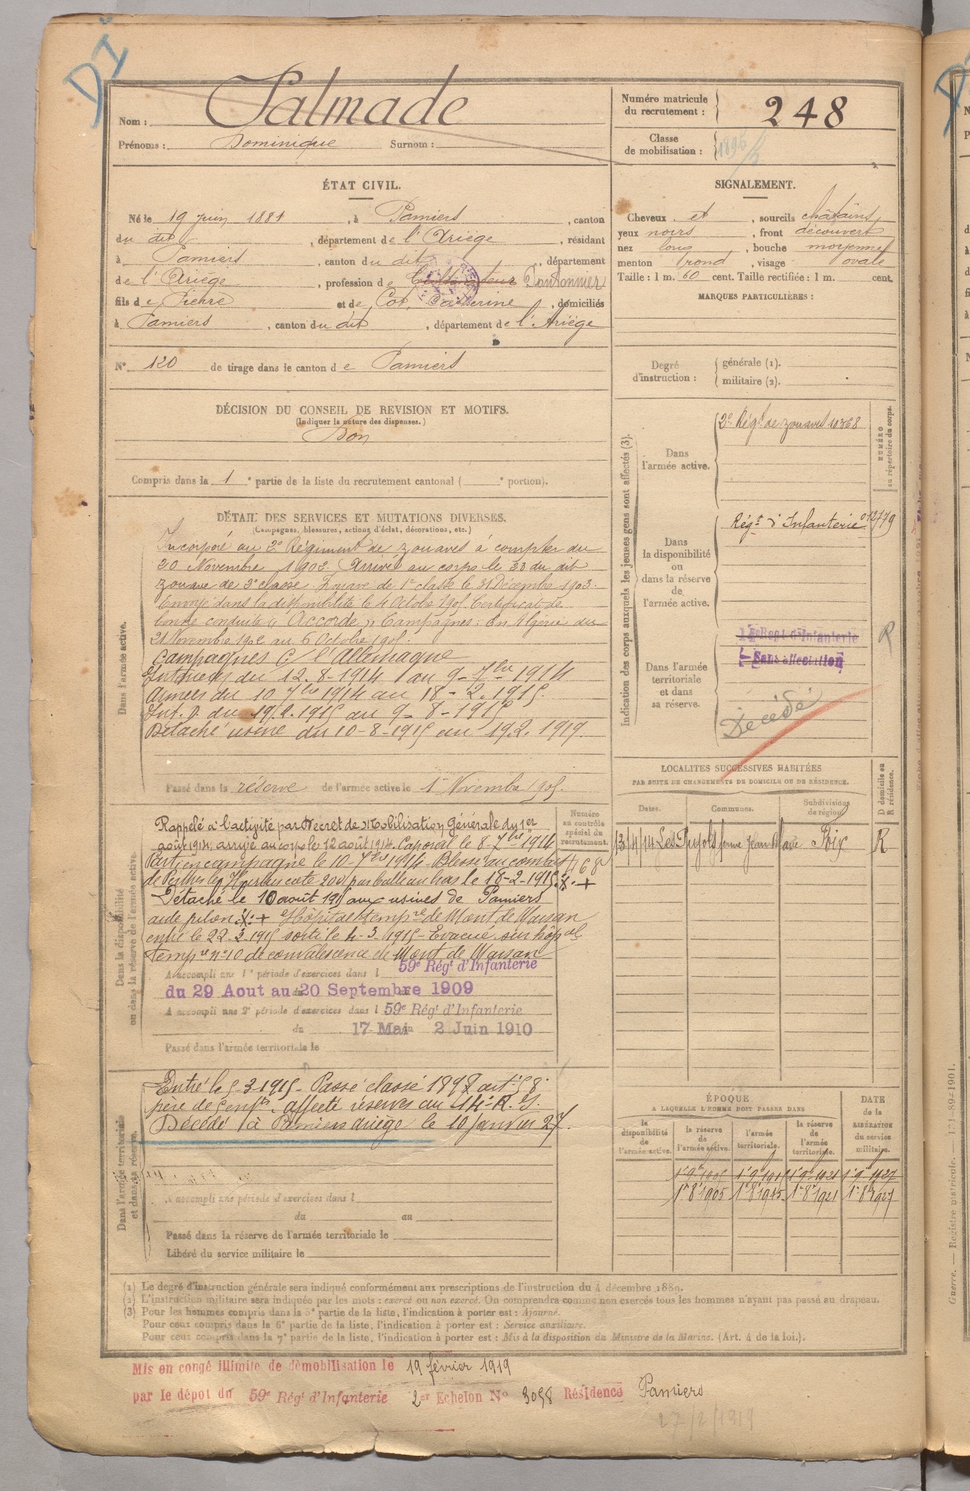 DI
Nom : Palmade
Prénoms : Dominique Surnom :
Numéro matricule du recrutement : 248
Classe de mobilisation :
ÉTAT CIVIL.
Né le 19 juin 1881, à Pamiers, canton
du dit, département de l'Ariège, résidant
à Pamiers, canton du dit, département
de l'Ariège, profession de Cantonnier
fils de Pierre et de Cot, Catherine, domiciliés
à Pamiers, canton du dit, département de l'Ariège
N° 120 de tirage dans le canton de Pamiers
SIGNALEMENT.
Cheveux et, sourcils châtains
yeux noirs, front découvert
nez long, bouche moyenne
menton rond, visage ovale
Taille : 1 m. 60 cent. Taille rectifiée : 1 m. cent.
MARQUES PARTICULIÈRES :
Degré d'instruction : générale (1). militaire (2).
DÉCISION DU CONSEIL DE REVISION ET MOTIFS.
(Indiquer la nature des dispenses.)
Bon
Compris dans la 1e partie de la liste du recrutement cantonal ( e portion).
DÉTAIL DES SERVICES ET MUTATIONS DIVERSES.
(Campagnes, blessures, actions d'éclat, décorations, etc.)
Dans l'armée active.
Incorporé au 2e Régiment de zouaves à compter du
20 Novembre 1902. Arrivé au corps le dit
zouave de 2e classe. Zouave de 1e classe le 31 Décembre 1903.
Envoyé dans la disponibilité le 4 Octobre 1905 Certificat de
bonne conduite "Accordé". Campagnes : En Algérie du
21 Novembre 1902 au 6 Octobre 1905.
Campagnes C/ l'Allemagne
Intérieur du 12-8-1914 au 9-7bre 1914
Armées du 10 7bre 1914 au 18-2-1915
Int. du 19.2.1915 au 9-8-1915
Détaché usine du 10-8-1915 au 19.2.1919
Passé dans la réserve de l'armée active le 1er Novembre 1905.
Indication des corps auxquels les jeunes gens sont affectés (3).
Dans l'armée active.
2e Régt de zouaves 10368
NUMÉRO au répertoire du corps.
Dans la disponibilité ou dans la réserve de l'armée active.
Régt d'Infanterie
Dans l'armée territoriale et dans sa réserve.
Régt d'Infanterie
Sans affectation
R
Décédé
LOCALITÉS SUCCESSIVES HABITÉES
PAR SUITE DE CHANGEMENTS DE DOMICILE OU DE RÉSIDENCE.
Dates. Communes. Subdivisions de région. D domicile ou R résidence.
13/4/14 Les Pujols Foix R
Dans la disponibilité ou dans la réserve de l'armée active.
Numéro au contrôle spécial du recrutement.
Rappelé à l'activité par Décret de Mobilisation Générale du 1er
août 1914, arrivé au corps le 12 août 1914. Caporal le 8 7bre 1914
Parti en campagne le 10 7bre 1914. Blessé au combat
de Perthes les Hurlus cote 200 par balle au bras le 18-2-1915
Détaché le 10 août 1915 aux usines de Pamiers
Hôpital tempre de Mont de Marsan
entré le 22.2.1915 sorti le 4-3-1915 - Evacué sur hôpal
tempre n° 10 de convalescence de Mont de Marsan
A accompli une 1e période d'exercices dans l 59e Régt d'Infanterie
du 29 Aout au 20 Septembre 1909
A accompli une 2e période d'exercices dans l 59e Régt d'Infanterie
du 17 Mai au 2 Juin 1910
Passé dans l'armée territoriale le
Dans l'armée territoriale et dans sa réserve.
Entré le 5-3-1915 - Passé classe 1895 art. 58
père de 5 enfts. affecté réserves au 14e R. I.
Décédé à Pamiers Ariège le 10 janvier 27.
A accompli une période d'exercices dans l
du au
Passé dans la réserve de l'armée territoriale le
Libéré du service militaire le
ÉPOQUE
A LAQUELLE L'HOMME DOIT PASSER DANS
la disponibilité de l'armée active. la réserve de l'armée active. l'armée territoriale. la réserve de l'armée territoriale.
DATE de la LIBÉRATION du service militaire.
1er 9e 1921 1er 9e 1927
1er 8e 1905 1er 8e 1915 1er 8e 1921 1er 8e 1927
(1) Le degré d'instruction générale sera indiqué conformément aux prescriptions de l'instruction du 4 décembre 1889.
(2) L'instruction militaire sera indiquée par les mots : exercé ou non exercé. On comprendra comme non exercés tous les hommes n'ayant pas passé au drapeau.
(3) Pour les hommes compris dans la 5e partie de la liste, l'indication à porter est : Ajourné.
Pour ceux compris dans la 6e partie de la liste, l'indication à porter est : Service auxiliaire.
Pour ceux compris dans la 7e partie de la liste, l'indication à porter est : Mis à la disposition du Ministre de la Marine. (Art. 4 de la loi.).
Mis en congé illimité de démobilisation le 19 février 1919
par le dépot du 59e Régt d'Infanterie 2er Echelon N° 3098 Résidence Pamiers
27/2/1919
Guerre. — Registre matricule. — 171-89-1901.